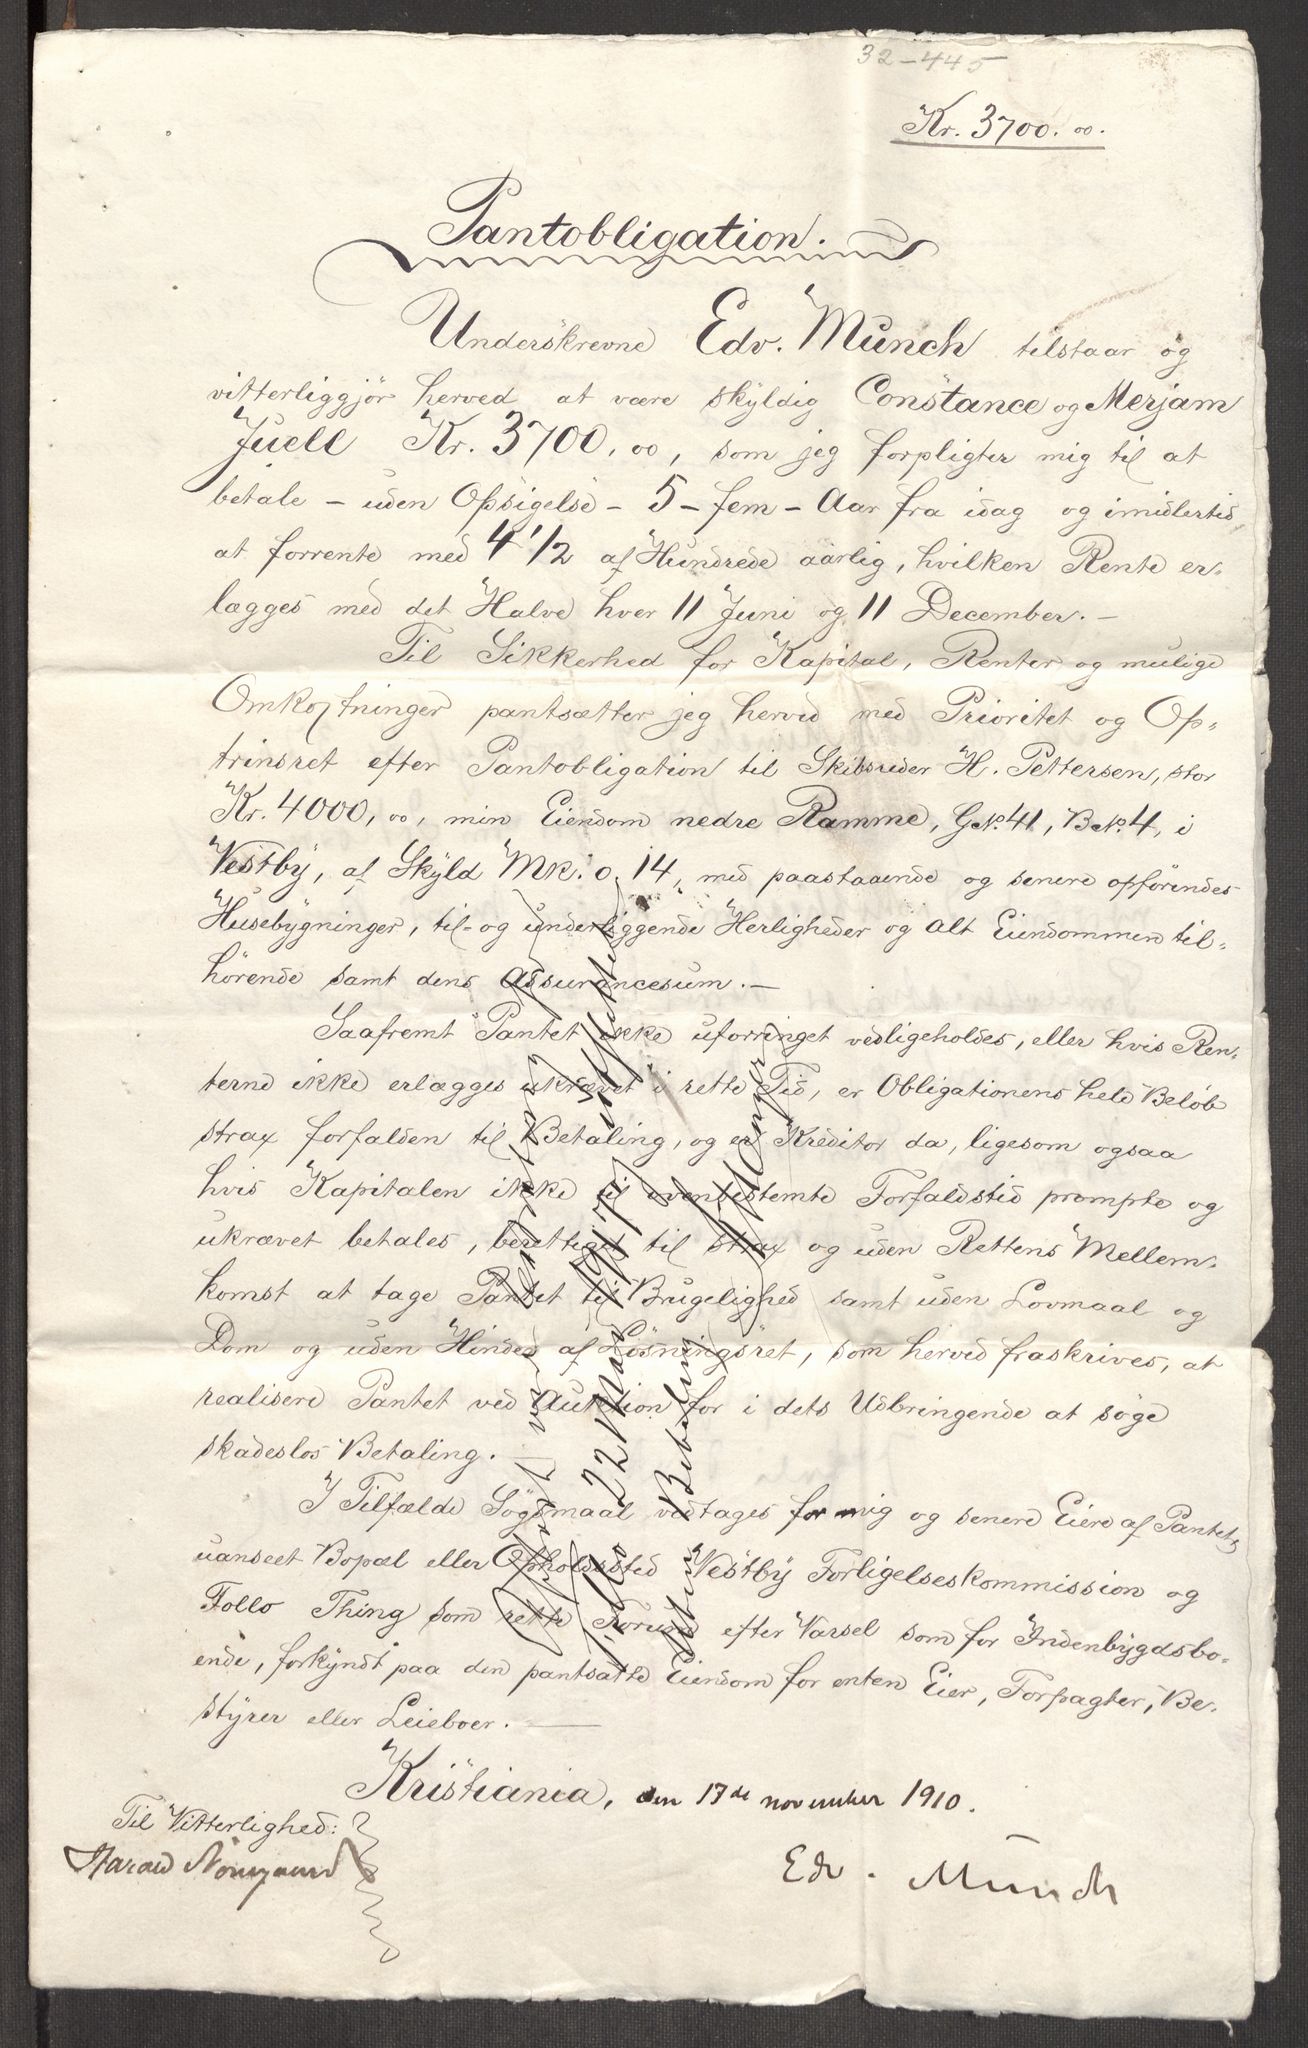 32-445
Kr. 3700.00.
Pantobligation.
Underskrevne Edv. Munch tilstaar og
vitterliggjør herved at være skyldig Constance og Merjam
Juell Kr. 3700,00, som jeg forpligter mig til at
betale – uden Opsigelse – 5 – fem – Aar fra idag og imidlertid
at forrente med 4 1/2 af Hundrede aarlig, hvilken Rente er-
lægges med det Halve hver 11 Juni og 11 December. –
Til Sikkerhed for Kapital, Renter og mulige
Omkostninger pantsætter jeg herved med Prioritet og Op-
trinsret efter Pantobligation til Skibsreder H. Pettersen, stor
Kr. 4000,00, min Eiendom nedre Ramme, GNo. 41, BNo. 4, i
Vestby, af Skyld Mk. 0.14, med paastaaende og senere opførendes
Husebygninger, til- og underliggende Herligheder og Alt Eiendommen til-
hørende samt dens Assurancesum. –
Saafremt Pantet ikke uforringet vedligeholdes, eller hvis Ren-
terne ikke erlægges ukrævet i rette Tid, er Obligationens hele Beløb
strax forfalden til Betaling, og er Kreditor da, ligesom ogsaa
hvis Kapitalen ikke til ovenbestemte Forfaldstid prompte og
ukrævet betales, berettiget til strax og uden Rettens Mellem-
komst at tage Pantet til Brugelighed samt uden Lovmaal og
Dom og uden Hinder af Løsningsret, som herved fraskrives, at
realisere Pantet ved Auktion for i dets Udbringende at søge
skadesløs Betaling.
I Tilfælde Søgsmaal vedtages for mig og senere Eiere af Pantet,
uanseet Bopæl eller Opholdssted Vestby Forligelseskommission og
Follo Thing som rette Forum efter Varsel som for Indenbygdsbo-
ende, forkyndt paa den pantsatte Eiendom for enten Eier, Forpagter, Be-
styrer eller Leieboer. –
Kristiania, den 17de november 1910.
Til Vitterlighed:
Harald Nørregaard
Edv. Munch
22 Mai 1917